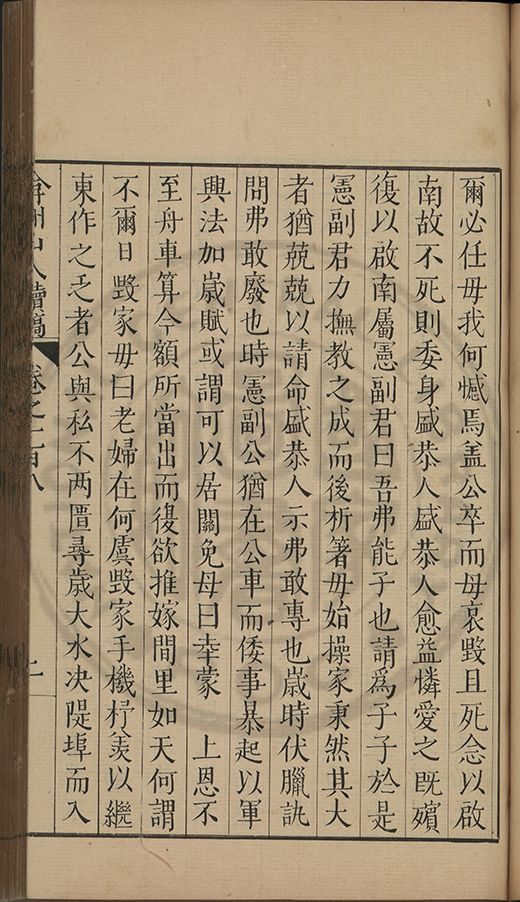 爾必任毋我何憾焉盖公卒而毋哀毀且死念以啟
南故不死則委身盛恭人盛恭人愈益憐愛之旣殯
復以啟南屬憲副君曰吾弗能子也請爲子子於是
憲副君力撫教之成而後析箸毋始操家秉然其大
者猶兢兢以請命盛恭人示弗敢專也歲時伏臘訊
問弗敢廢也時憲副公猶在公車而倭事暴起以軍
興法加歲賦或謂可以居關免母曰幸蒙 上恩不
至舟車算今額所當出而復欲推嫁閭里如天何謂
不爾日毀家毋曰老婦在何虞毀家手機杼羨以繼
東作之乏者公與私不两匱尋歲大水决隄埠而入
弇州山人續稿 卷之一百八 二